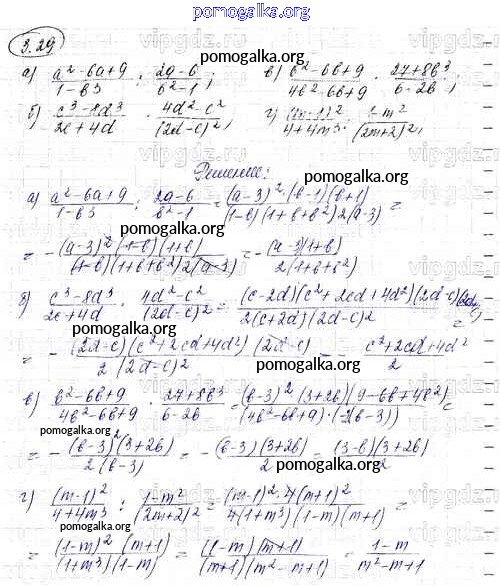 pomogalka.org
3.29
а) (a²-6a+9)/(1-b³) : (2a-6)/(b²-1); в) (b²-6b+9)/(4b²-6b+9) · (27+8b³)/(6-2b);
б) (c³-8d³)/(2c+4d) · (4d²-c²)/(2d-c)²; г) (m-1)²/(4+4m³) : (1-m²)/(2m+2)²;
Решение:
а) (a²-6a+9)/(1-b³) : (2a-6)/(b²-1) = (a-3)²·(b-1)(b+1)/(1-b)(1+b+b²)2(a-3) =
= -(a-3)²(1-b)(1+b)/(1-b)(1+b+b²)2(a-3) = -(a-3)(1+b)/2(1+b+b²)
б) (c³-8d³)/(2c+4d) · (4d²-c²)/(2d-c)² = (c-2d)(c²+2cd+4d²)(2d-c)/2(c+2d)(2d-c)²
= -(2d-c)(c²+2cd+4d²)(2d-c)/2(2d-c)² = -(c²+2cd+4d²)/2
в) (b²-6b+9)/(4b²-6b+9) · (27+8b³)/(6-2b) = (b-3)²(3+2b)(9-6b+4b²)/(4b²-6b+9)·(-2(b-3)) =
= -(b-3)²(3+2b)/2(b-3) = -(b-3)(3+2b)/2 = (3-b)(3+2b)/2
г) (m-1)²/(4+4m³) : (1-m²)/(2m+2)² = (m-1)²·4(m+1)²/4(1+m³)(1-m)(m+1) =
= (1-m)²(m+1)/(1+m³)(1-m) = (1-m)(m+1)/(m+1)(m²-m+1) = (1-m)/(m²-m+1)